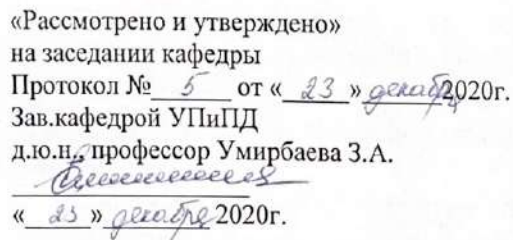 «Рассмотрено и утверждено»
на заседании кафедры
Протокол № 5 от « 23 » декабря 2020г.
Зав.кафедрой УПиПД
д.ю.н., профессор Умирбаева З.А.
« 23 » декабря 2020г.